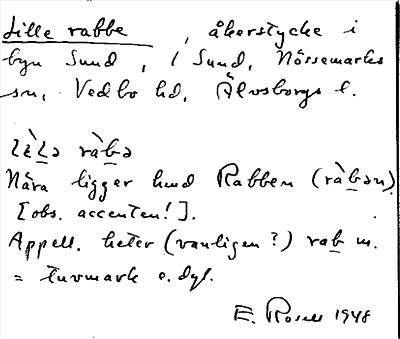 Lille rabbe, åkerstycke i
byn Sund, i Sund, Nössemarks
sn, Vedbo hd, Älvsborgs l.
ràbə
Nära ligger hmd Rabben (ràbən)
[obs. accenten!].
Appell. heter (vanligen?) rab m.
= tuvmark o.dyl.
E. Rosell 1948